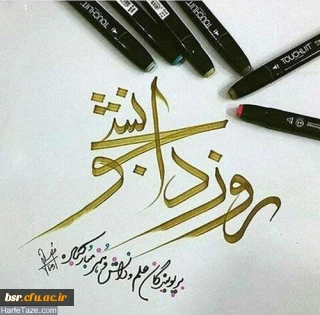 TOUCHLIIT
TOUCHLIIT
روز دانشجو
بر پویندگان علم و دانش و هنر مبارکباد
bsr.cfu.ac.ir
HarfeTaze.com